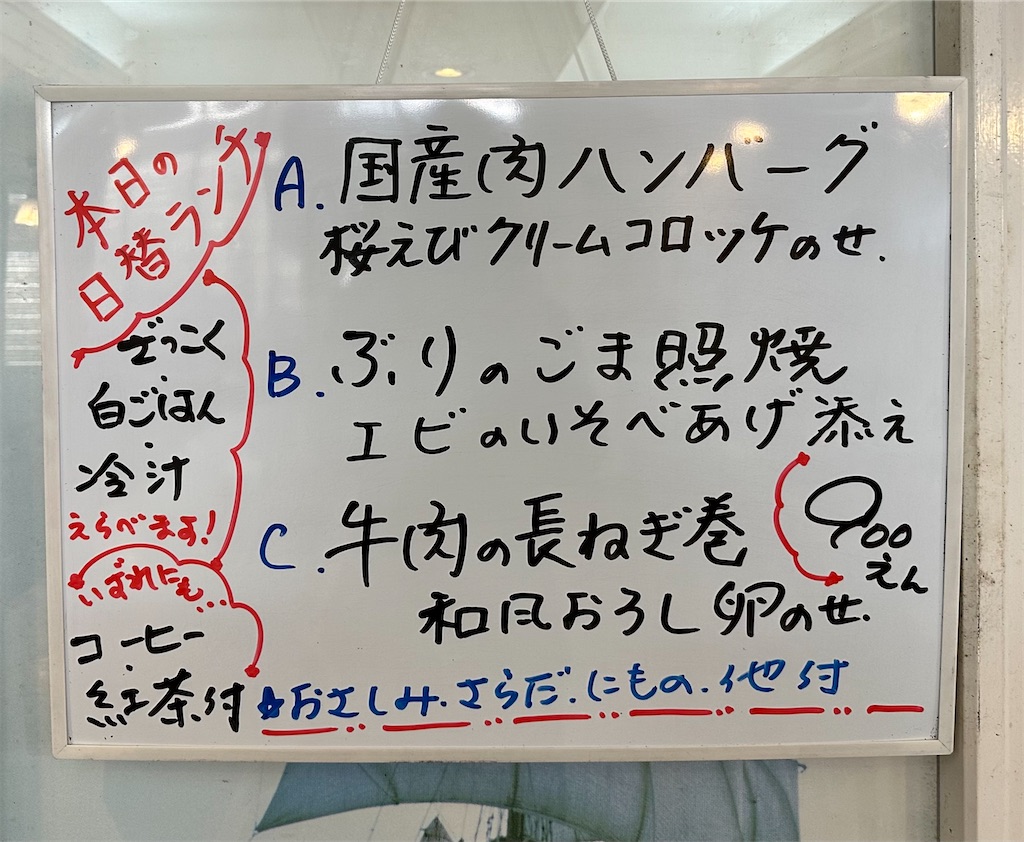 本日の
日替ランチ
A. 国産肉ハンバーグ
桜えびクリームコロッケのせ.
B. ぶりのごま照焼
エビのいそべあげ添え
C. 牛肉の長ねぎ巻
和風おろし卵のせ.
900
えん
ざっこく
・
白ごはん
・
冷汁
えらべます!
いずれにも...
コーヒー
・
紅茶付
☆おさしみ.さらだ.にもの.他付